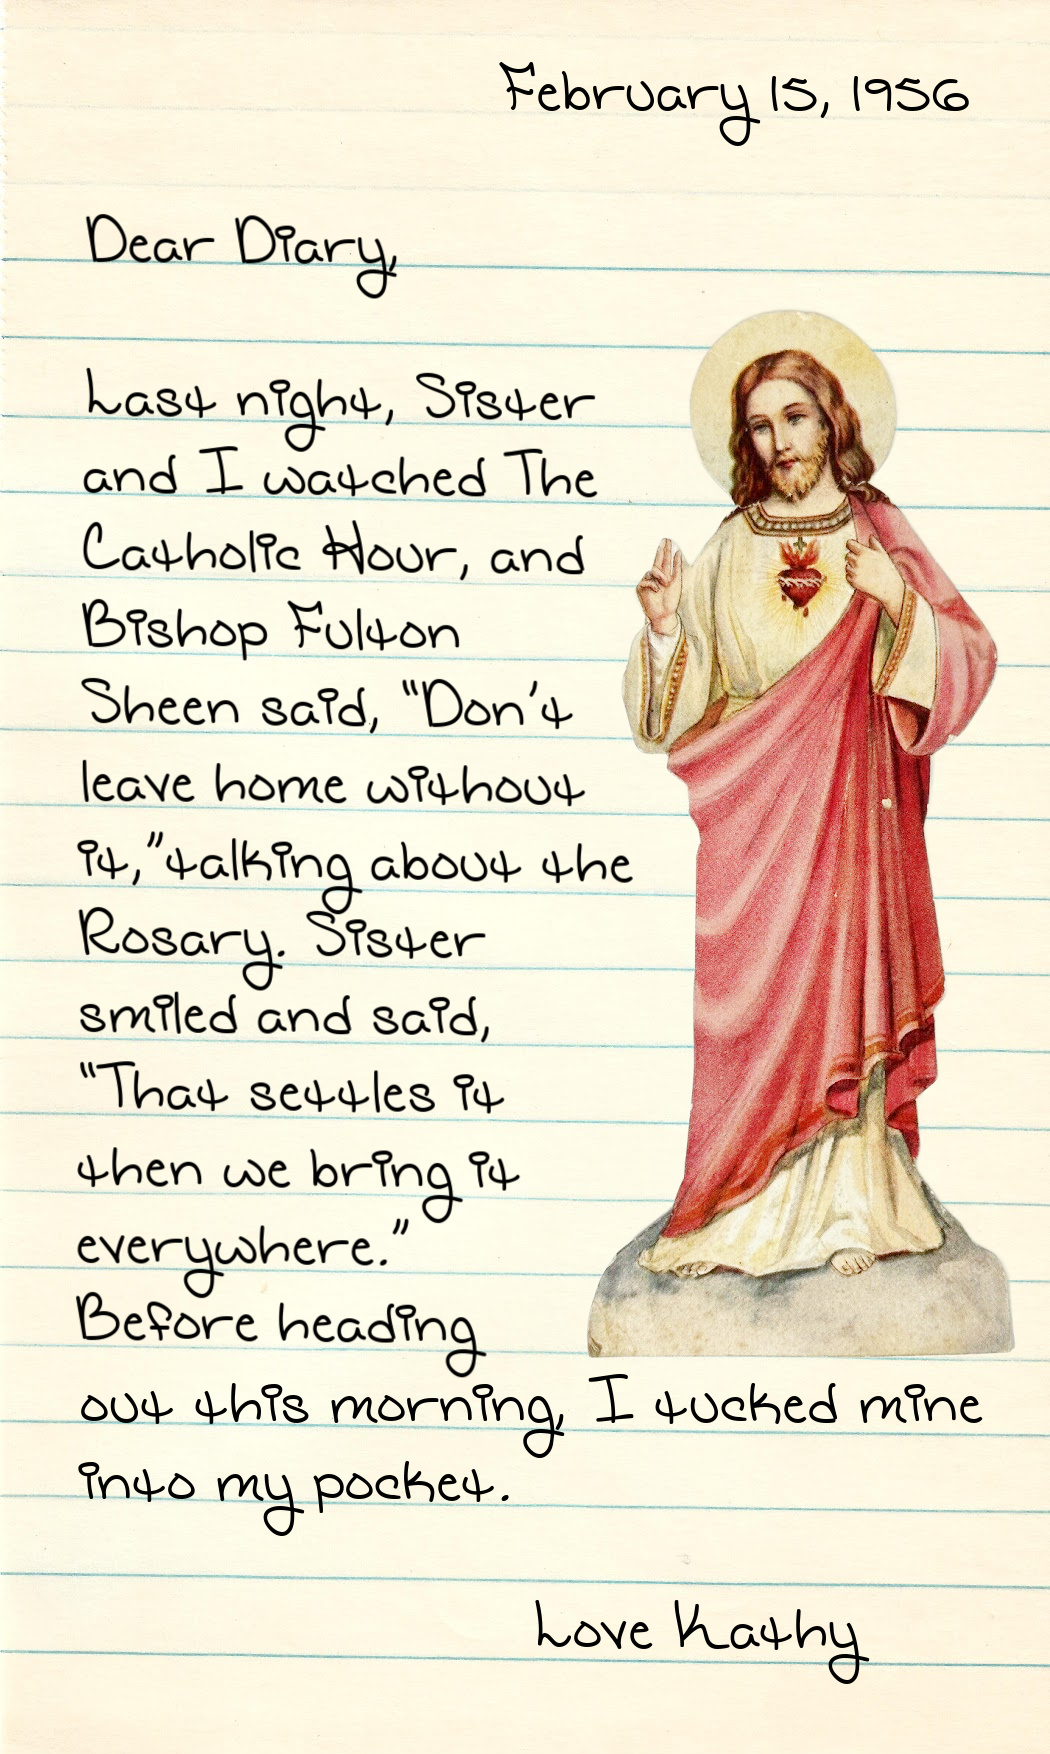 February 15, 1956
Dear Diary,
Last night, Sister
and I watched The
Catholic Hour, and
Bishop Fulton
Sheen said, "Don't
leave home without
it,"talking about the
Rosary. Sister
smiled and said,
"That settles it
then we bring it
everywhere."
Before heading
out this morning, I tucked mine
into my pocket.
Love Kathy